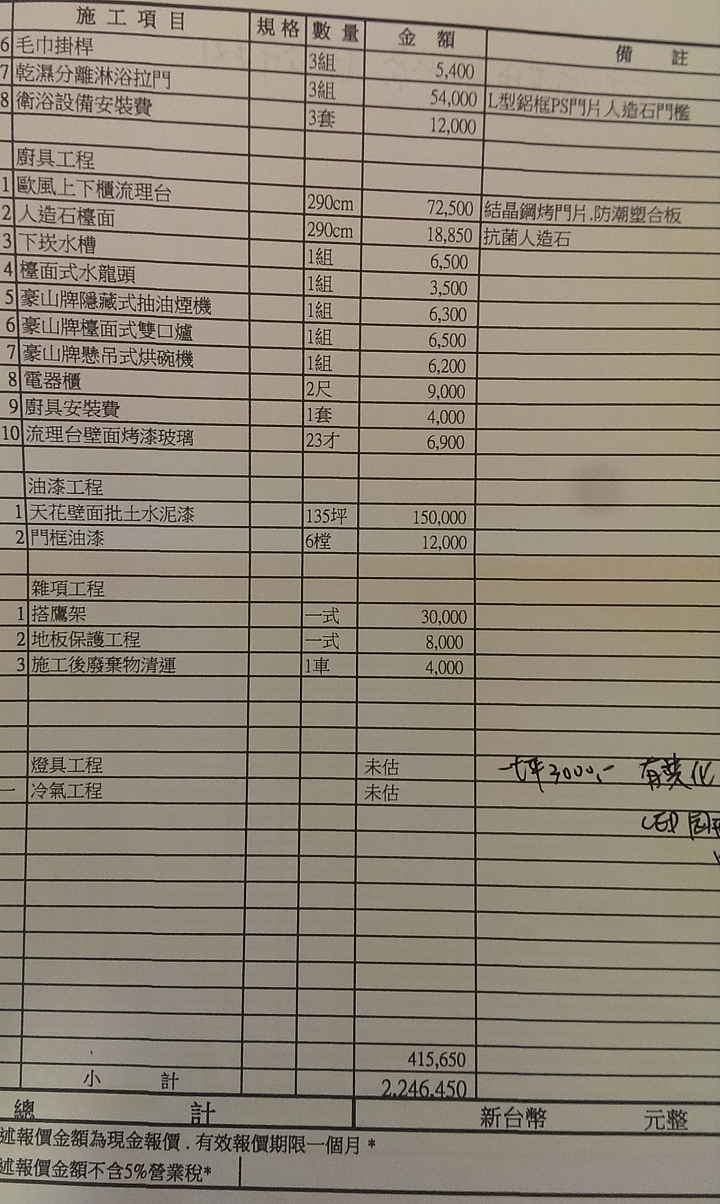 施工項目 規格 數量 金額 備註
6 毛巾掛桿 3組 5,400
7 乾濕分離淋浴拉門 3組 54,000 L型鋁框PS門片人造石門檻
8 衛浴設備安裝費 3套 12,000
廚具工程
1 歐風上下櫃流理台 290cm 72,500 結晶鋼烤門片.防潮塑合板
2 人造石檯面 290cm 18,850 抗菌人造石
3 下崁水槽 1組 6,500
4 檯面式水龍頭 1組 3,500
5 豪山牌隱藏式抽油煙機 1組 6,300
6 豪山牌檯面式雙口爐 1組 6,500
7 豪山牌懸吊式烘碗機 1組 6,200
8 電器櫃 2尺 9,000
9 廚具安裝費 1套 4,000
10 流理台壁面烤漆玻璃 23才 6,900
油漆工程
1 天花壁面批土水泥漆 135坪 150,000
2 門框油漆 6樘 12,000
雜項工程
1 搭鷹架 一式 30,000
2 地板保護工程 一式 8,000
3 施工後廢棄物清運 1車 4,000
燈具工程 未估 一坪3000.-
一 冷氣工程 未估
LED
415,650
小計 2,246,450
總計 新台幣 元整
述報價金額為現金報價.有效報價期限一個月*
述報價金額不含5%營業稅*